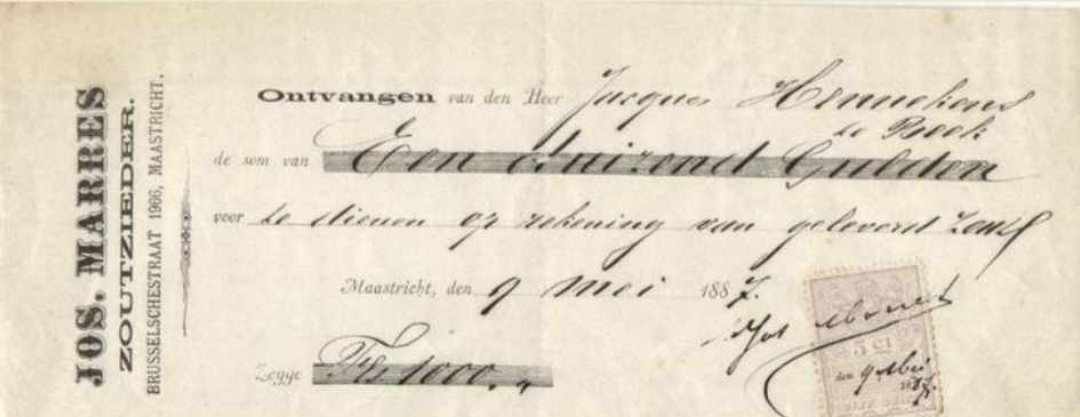 JOS. MARRES
ZOUTZIEDER.
BRUSSELSCHESTRAAT 1966, MAASTRICHT.
Ontvangen van den Heer Jacques Hennekens
te Beek
de som van Een duizend Gulden
voor te dienen op rekening van geleverd zout
Maastricht, den 9 Mei 1887.
Jos Marres
Zegge Frs 1000.„
5 CT
den 9 Mei
1887.